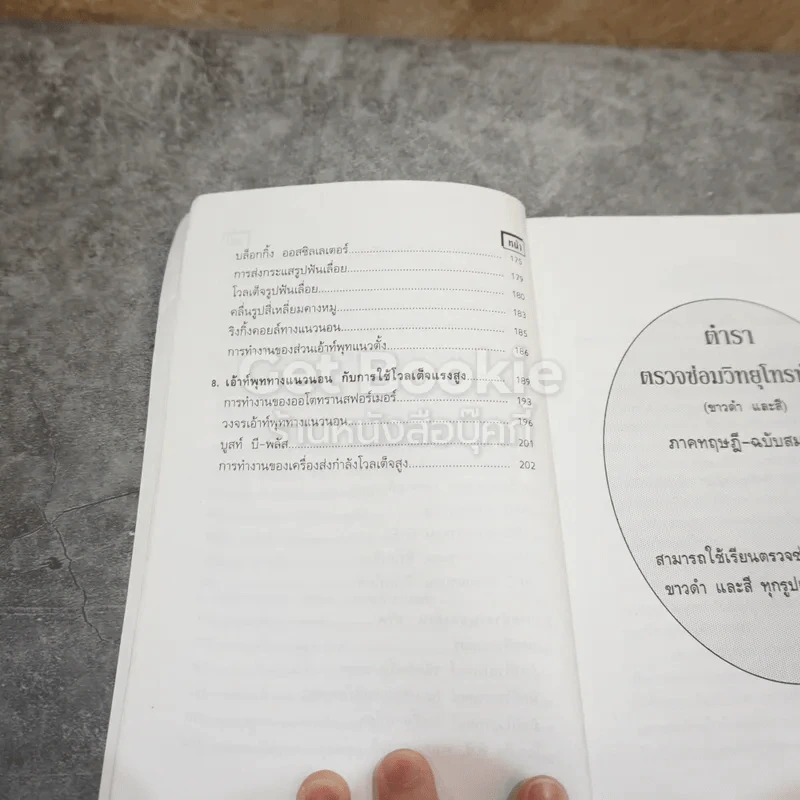 หน้า
บล็อกกิ้ง ออสซิลเลเตอร์ 175
การส่งกระแสรูปฟันเลื่อย 179
โวลเต็จรูปฟันเลื่อย 180
คลื่นรูปสี่เหลี่ยมคางหมู 183
ริงกิ้งคอยล์ทางแนวนอน 185
การทำงานของส่วนเอ้าท์พุทแนวตั้ง 186
8. เอ้าท์พุททางแนวนอน กับการใช้โวลเต็จแรงสูง 189
การทำงานของออโตทรานสฟอร์เมอร์ 193
วงจรเอ้าท์พุททางแนวนอน 196
บูสท์ บี-พลัส 201
การทำงานของเครื่องส่งกำลังโวลเต็จสูง 202
ตำรา
ตรวจซ่อมวิทยุโทรทั
(ขาวดำ และสี)
ภาคทฤษฎี-ฉบับสม
สามารถใช้เรียนตรวจซ่
ขาวดำ และสี ทุกรูป
Get Bookie
ร้านหนังสือบุ๊คกี้